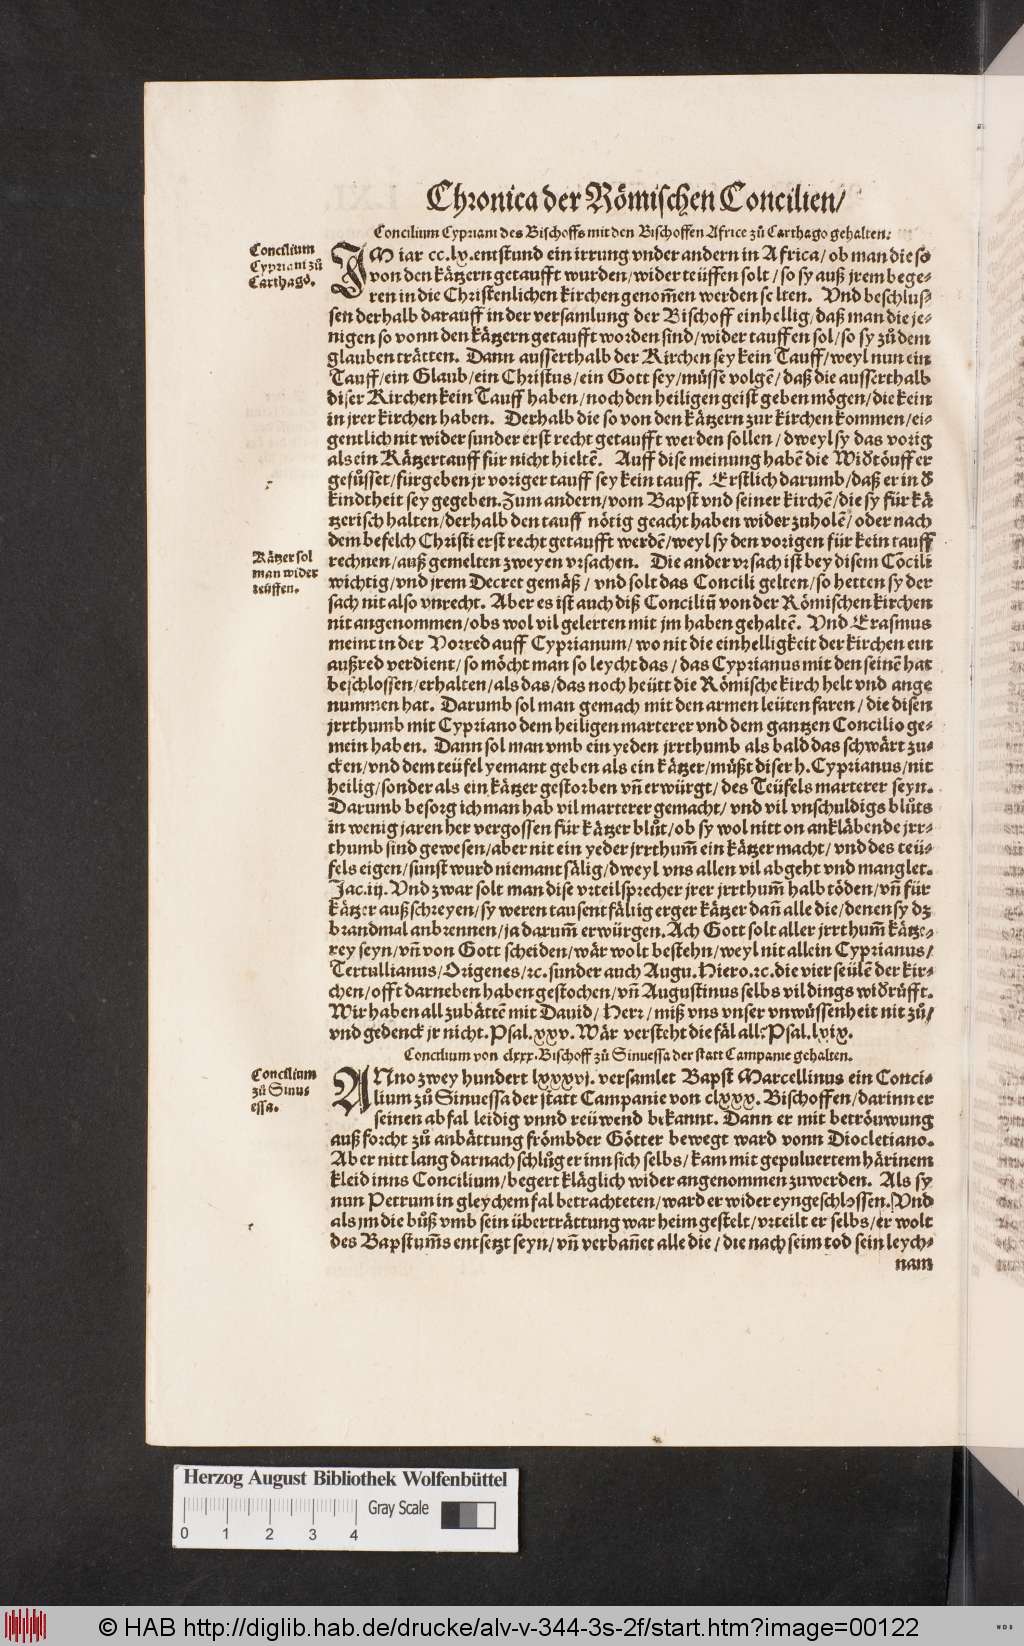 Chronica der Römischen Concilien/
Concilium Cypriani des Bischoffs mit den Bischoffen Africe zů Carthago gehalten.
Concilium
Cypriani zů
Carthago.
IM iar cc.lx. entstund ein irrung vnder andern in Africa/ ob man die so
von den kätzern getaufft wurden/ wider teüffen solt/ so sy auß jrem bege-
ren in die Christenlichen kirchen genom̃en werden solten. Vnd beschlus-
sen derhalb darauff in der versamlung der Bischoff einhellig/ daß man die je-
nigen so vonn den kätzern getaufft worden sind/ wider tauffen sol/ so sy zů dem
glauben trätten. Dann ausserthalb der Kirchen sey kein Tauff/ weyl nun ein
Tauff/ ein Glaub/ ein Christus/ ein Gott sey/ müsse volgẽ/ daß die ausserthalb
diser Kirchen kein Tauff haben/ noch den heiligen geist geben mögen/ die kein
in jrer kirchen haben. Derhalb die so von den kätzern zur kirchen kommen/ ei-
gentlich nit wider sunder erst recht getaufft werden sollen/ dweyl sy das vorig
als ein Kätzertauff für nicht hieltẽ. Auff dise meinung habẽ die Widtöuffer
gefůsset/ fürgeben jr voriger tauff sey kein tauff. Erstlich darumb/ daß er in d
kindtheit sey gegeben. Zum andern/ vom Bapst vnd seiner kirchẽ/ die sy für kä
tzerisch halten/ derhalb den tauff nötig geacht haben wider zuholẽ/ oder nach
dem befelch Christi erst recht getaufft werdẽ/ weyl sy den vorigen für kein tauff
Kätzer sol
man wider
teüffen.
rechnen/ auß gemelten zweyen vrsachen. Die ander vrsach ist bey disem Cõcili
wichtig/ vnd jrem Decret gemäß/ vnd solt das Concili gelten/ so hetten sy der
sach nit also vnrecht. Aber es ist auch diß Conciliũ von der Römischen kirchen
nit angenommen/ obs wol vil gelerten mit jm haben gehaltẽ. Vnd Erasmus
meint in der Vorred auff Cyprianum/ wo nit die einhelligkeit der kirchen ein
außred verdient/ so möcht man so leycht das/ das Cyprianus mit den seinẽ hat
beschlossen/ erhalten/ als das/ das noch heütt die Römische kirch helt vnd ange
nummen hat. Darumb sol man gemach mit den armen leüten faren/ die disen
jrrthumb mit Cypriano dem heiligen marterer vnd dem gantzen Concilio ge-
mein haben. Dann sol man vmb ein yeden jrrthumb als bald das schwärt zu-
cken/ vnd dem teüfel yemant geben als ein kätzer/ müßt diser h. Cyprianus/ nit
heilig/ sonder als ein kätzer gestorben vñ erwürgt/ des Teüfels marterer seyn.
Darumb besorg ich man hab vil marterer gemacht/ vnd vil vnschuldigs blůts
in wenig jaren her vergossen für kätzer blůt/ ob sy wol nitt on ankläbende jrr-
thumb sind gewesen/ aber nit ein yeder jrrthum̃ ein kätzer macht/ vnd des teü-
fels eigen/ sunst wurd niemant sälig/ dweyl vns allen vil abgeht vnd manglet.
Jac. iij. Vnd zwar solt man dise vrteilsprecher jrer jrrthum̃ halb töden/ vñ für
kätzer außschreyen/ sy weren tausentfältig erger kätzer dañ alle die/ denen sy dz
brandmal anbrennen/ ja darum̃ erwürgen. Ach Gott solt aller jrrthum̃ kätze-
rey seyn/ vñ von Gott scheiden/ wär wolt bestehn/ weyl nit allein Cyprianus/
Tertullianus/ Origenes/ ꝛc. sunder auch Augu. Hiero. ꝛc. die vier seülẽ der kir-
chen/ offt darneben haben gestochen/ vñ Augustinus selbs vil dings widrüfft.
Wir haben all zubättẽ mit Dauid/ Herr/ miß vns vnser vnwüssenheit nit zů/
vnd gedenck jr nicht. Psal. xxv. Wär versteht die fäl all? Psal. lxix.
Concilium von clxxx. Bischoff zů Sinuessa der statt Campanie gehalten.
Concilium
zů Sinus
essa.
ANno zwey hundert lxxxvj. versamlet Bapst Marcellinus ein Conci-
lium zů Sinuessa der statt Campanie von clxxx. Bischoffen/ darinn er
seinen abfal leidig vnnd reüwend bekannt. Dann er mit betröuwung
auß forcht zů anbättung frömbder Götter bewegt ward vonn Diocletiano.
Aber nitt lang darnach schlůg er inn sich selbs/ kam mit gepuluertem härinem
kleid inns Concilium/ begert kläglich wider angenommen zuwerden. Als sy
nun Petrum in gleychem fal betrachteten/ ward er wider eyngeschlossen. Vnd
als jm die bůß vmb sein überträttung war heim gestelt/ vrteilt er selbs/ er wolt
des Bapstum̃s entsetzt seyn/ vñ verbañet alle die/ die nach seim tod sein leych-
nam
Herzog August Bibliothek Wolfenbüttel
Gray Scale
0 1 2 3 4
© HAB http://diglib.hab.de/drucke/alv-v-344-3s-2f/start.htm?image=00122